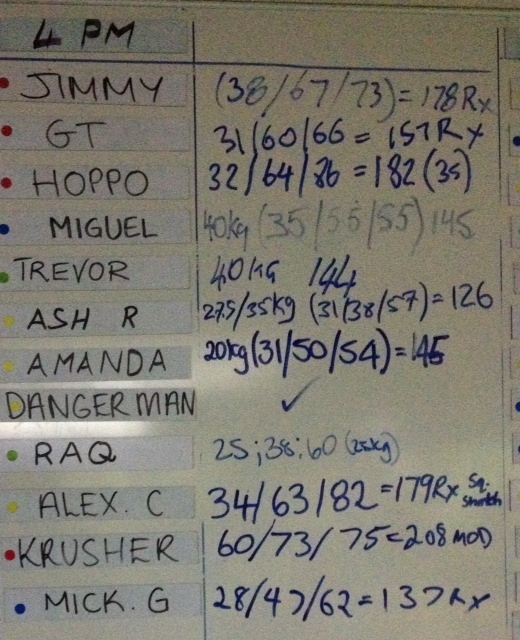 4 PM
JIMMY (38/67/73) = 178 Rx
GT 31/60/66 = 157 Rx
HOPPO 32/64/86 = 182 (35)
MIGUEL 40kg (35/55/55) 145
TREVOR 40KG 144
ASH R 27.5/35kg (31/38/57) = 126
AMANDA 20kg (31/50/54) = 145
DANGERMAN ✓
RAQ 25;38;60 (25kg)
ALEX. C 34/63/82 = 179 Rx Sq.
KRUSHER 60/73/75 = 208 MOD
MICK. G 28/47/62 = 137 Rx